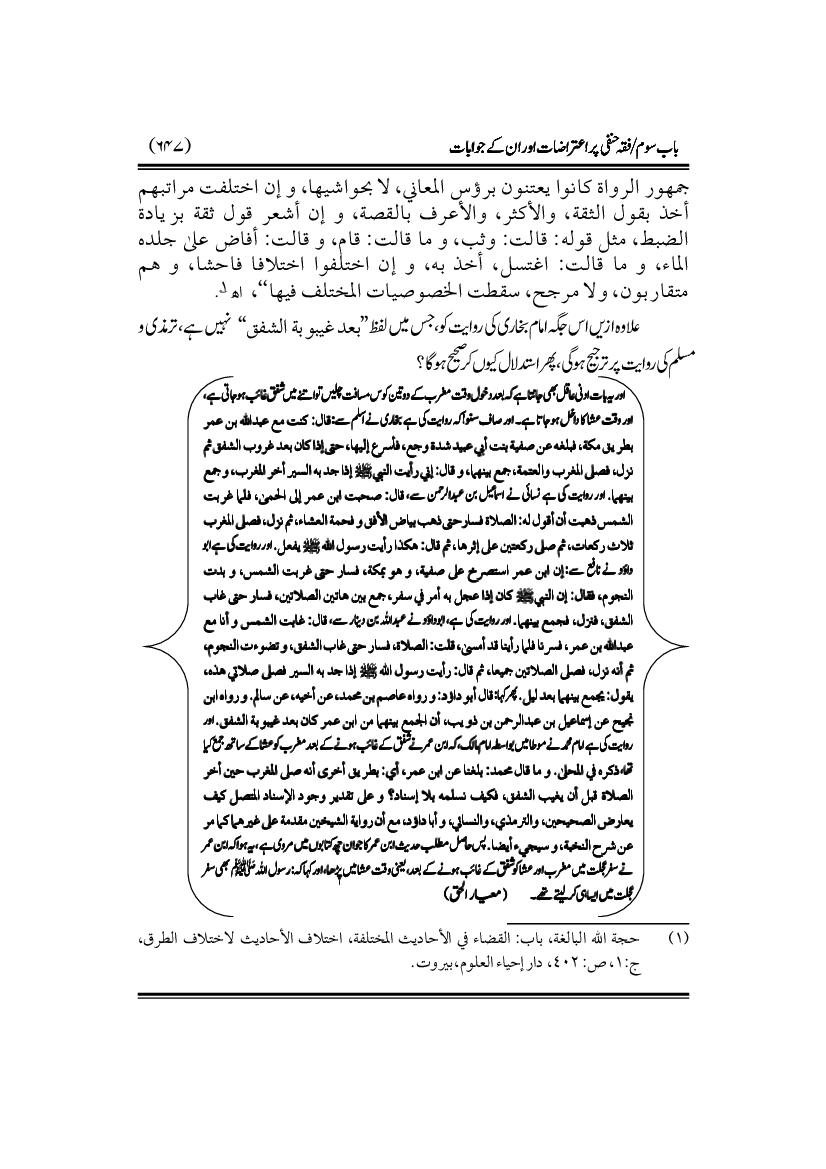 باب سوم/فقہ حنفی پر اعتراضات اور ان کے جوابات (۶۴۷)
جمهور الرواة كانوا يعتنون برؤس المعاني، لا بحواشيها، و إن اختلفت مراتبهم
أخذ بقول الثقة، والأكثر، والأعرف بالقصة، و إن أشعر قول ثقة بزيادة
الضبط، مثل قوله: قالت: وثب، و ما قالت: قام، و قالت: أفاض علىٰ جلده
الماء، و ما قالت: اغتسل، أخذ به، و إن اختلفوا اختلافا فاحشا، و هم
متقاربون، ولا مرجح، سقطت الخصوصيات المختلف فيها“، اھ ۱.
علاوہ ازیں اس جگہ امام بخاری کی روایت کو، جس میں لفظ ”بعد غيبوبة الشفق“ نہیں ہے، ترمذی و
مسلم کی روایت پر ترجیح ہوگی، پھر استدلال کیوں کر صحیح ہوگا؟
اور یہ بات ادنی عاقل بھی جانتا ہے کہ بعد دخول وقت مغرب کے دو تین کوس مسافت چلیں تو اتنے میں شفق غائب ہو جاتی ہے،
اور وقت عشا کا داخل ہو جاتا ہے۔ اور صاف سنو آکہ روایت کی ہے بخاری نے اسلم سے: قال: كنت مع عبدالله بن عمر
بطريق مكة، فبلغه عن صفية بنت أبي عبيد شدة وجع، فأسرع إليها، حتى إذا كان بعد غروب الشفق ثم
نزل، فصلى المغرب والعتمة، جمع بينهما، و قال: إني رأيت النبي ﷺ إذا جد به السير أخر المغرب، و جمع
بينهما. اور روایت کی ہے نسائی نے اسماعیل بن عبدالرحمن سے، قال: صحبت ابن عمر إلى الحمىٰ، فلما غربت
الشمس ذهبت أن أقول له: الصلاة فسار حتى ذهب بياض الأفق و فحمة العشاء، ثم نزل، فصلى المغرب
ثلاث ركعات، ثم صلى ركعتين على إثرها، ثم قال: هكذا رأيت رسول الله ﷺ يفعل. اور روایت کی ہے ابو
داؤد نے نافع سے: إن ابن عمر استصرخ على صفية، و هو بمكة، فسار حتى غربت الشمس، و بدت
النجوم، فقال: إن النبي ﷺ كان إذا عجل به أمر في سفر، جمع بين هاتين الصلاتين، فسار حتى غاب
الشفق، فنزل، فجمع بينهما. اور روایت کی ہے، ابوداؤد نے عبداللہ بن دینار سے، قال: غابت الشمس و أنا مع
عبدالله بن عمر، فسرنا فلما رأينا قد أمسىٰ، قلت: الصلاة، فسار حتى غاب الشفق، و تضوءت النجوم،
ثم أنه نزل، فصلى الصلاتين جميعا، ثم قال: رأيت رسول الله ﷺ إذا جد به السير فصلى صلاتي هذه،
يقول: يجمع بينهما بعد ليل. پھر کہا: قال أبو داؤد: و رواه عاصم بن محمد، عن أخيه، عن سالم. و رواه ابن
نجيح عن إسماعيل بن عبدالرحمن بن ذويب، أن الجمع بينهما من ابن عمر كان بعد غيبوبة الشفق. اور
روایت کی ہے امام محمد نے موطا میں بواسطہ امام مالک، کہ ابن عمر نے شفق کے غائب ہونے کے بعد مغرب کو عشا کے ساتھ جمع کیا
تھا، ذكره في المحلى. و ما قال محمد: بلغنا عن ابن عمر، أي: بطريق أخرى أنه صلى المغرب حين أخر
الصلاة قبل أن يغيب الشفق، فكيف نسلمه بلا إسناد؟ و على تقدير وجود الإسناد المتصل كيف
يعارض الصحيحين، والترمذي، والنسائي، و أبا داؤد، مع أن رواية الشيخين مقدمة على غيرهما كما مر
عن شرح النخبة، و سيجيء أيضا. پس حاصل مطلب حدیث ابن عمر کا جو ان چھ کتابوں میں مروی ہے، یہ ہوا کہ ابن عمر
نے سفر عجلت میں مغرب اور عشا کو شفق کے غائب ہونے کے بعد، یعنی وقت عشا میں پڑھا، اور کہا کہ: رسول اللہ ﷺ بھی سفر
عجلت میں ایسا ہی کر لیتے تھے۔ (معیار الحق)
(١) حجة الله البالغة، باب: القضاء في الأحاديث المختلفة، اختلاف الأحاديث لاختلاف الطرق،
ج:١، ص:٤٠٢، دار إحياء العلوم، بيروت.